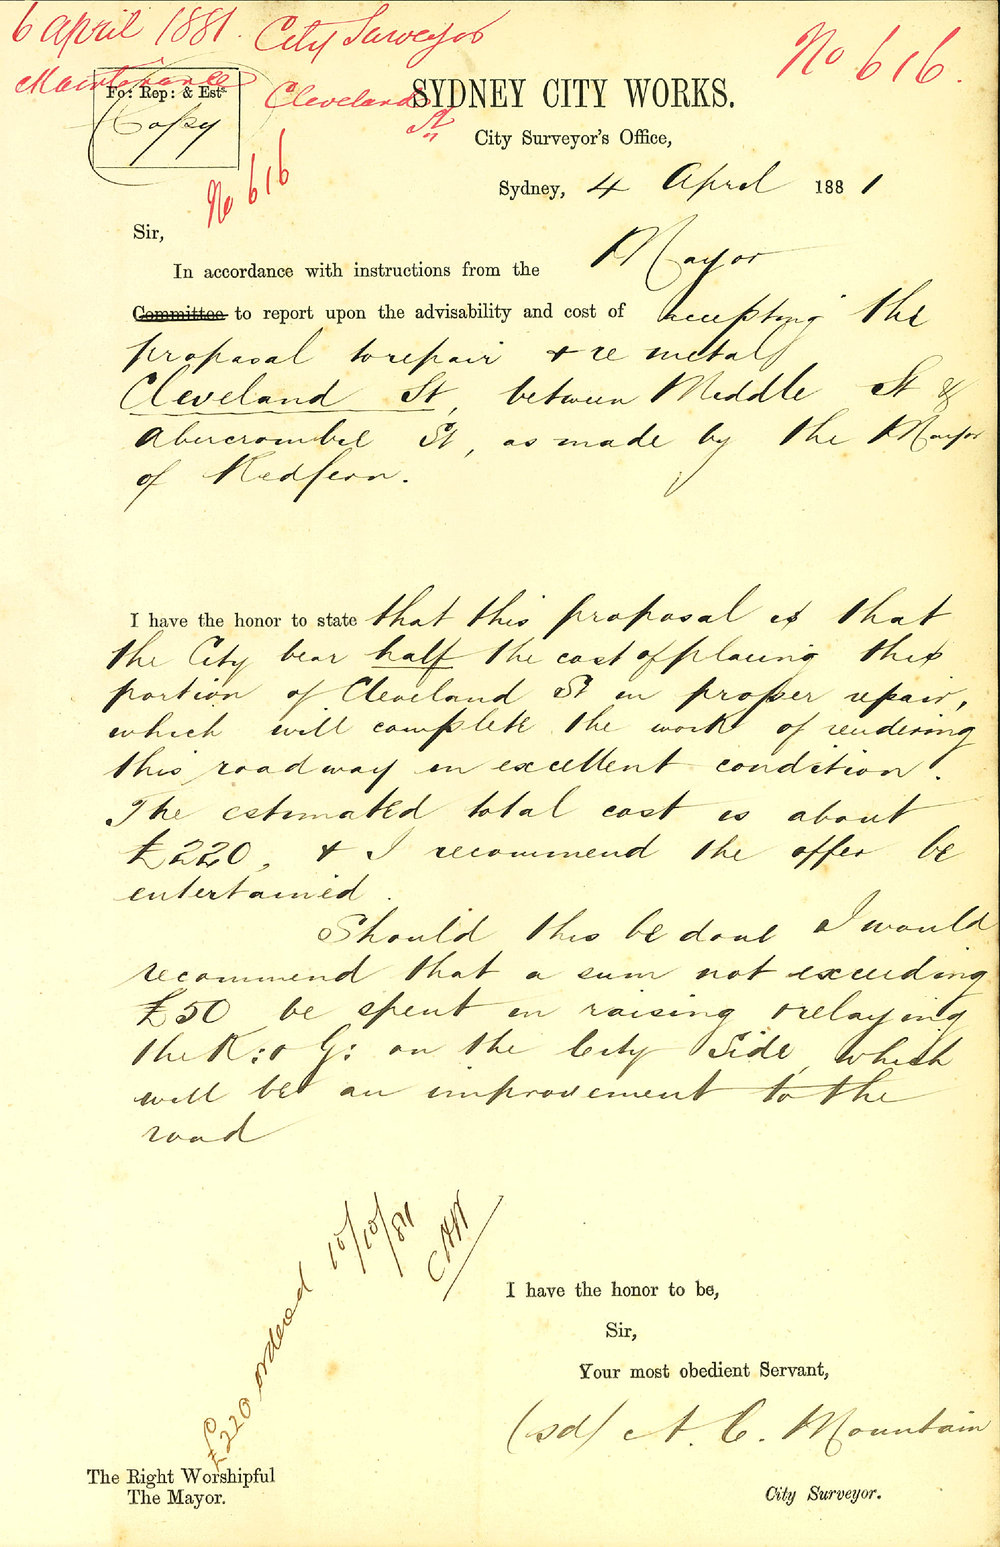 6 April 1881. City Surveyor
No 616.
Maintenance
Cleveland St
Fo: Rep: & Est
Copy
No 616
SYDNEY CITY WORKS.
City Surveyor's Office,
Sydney, 4 April 1881
Sir,
In accordance with instructions from the Mayor
Committee to report upon the advisability and cost of accepting the
proposal to repair & re metal
Cleveland St, between Middle St &
Abercrombie St, as made by the Mayor
of Redfern.
I have the honor to state that this proposal is that
the City bear half the cost of placing this
portion of Cleveland St in proper repair,
which will complete the work of rendering
this roadway in excellent condition.
The estimated total cost is about
£220, & I recommend the offer be
entertained.
Should this be done I would
recommend that a sum not exceeding
£50 be spent in raising & relaying
the K: & G: on the City Side, which
will be an improvement to the
road
£220 ordered 10/10/81
I have the honor to be,
Sir,
Your most obedient Servant,
(sd) A. C. Mountain
The Right Worshipful
The Mayor.
City Surveyor.